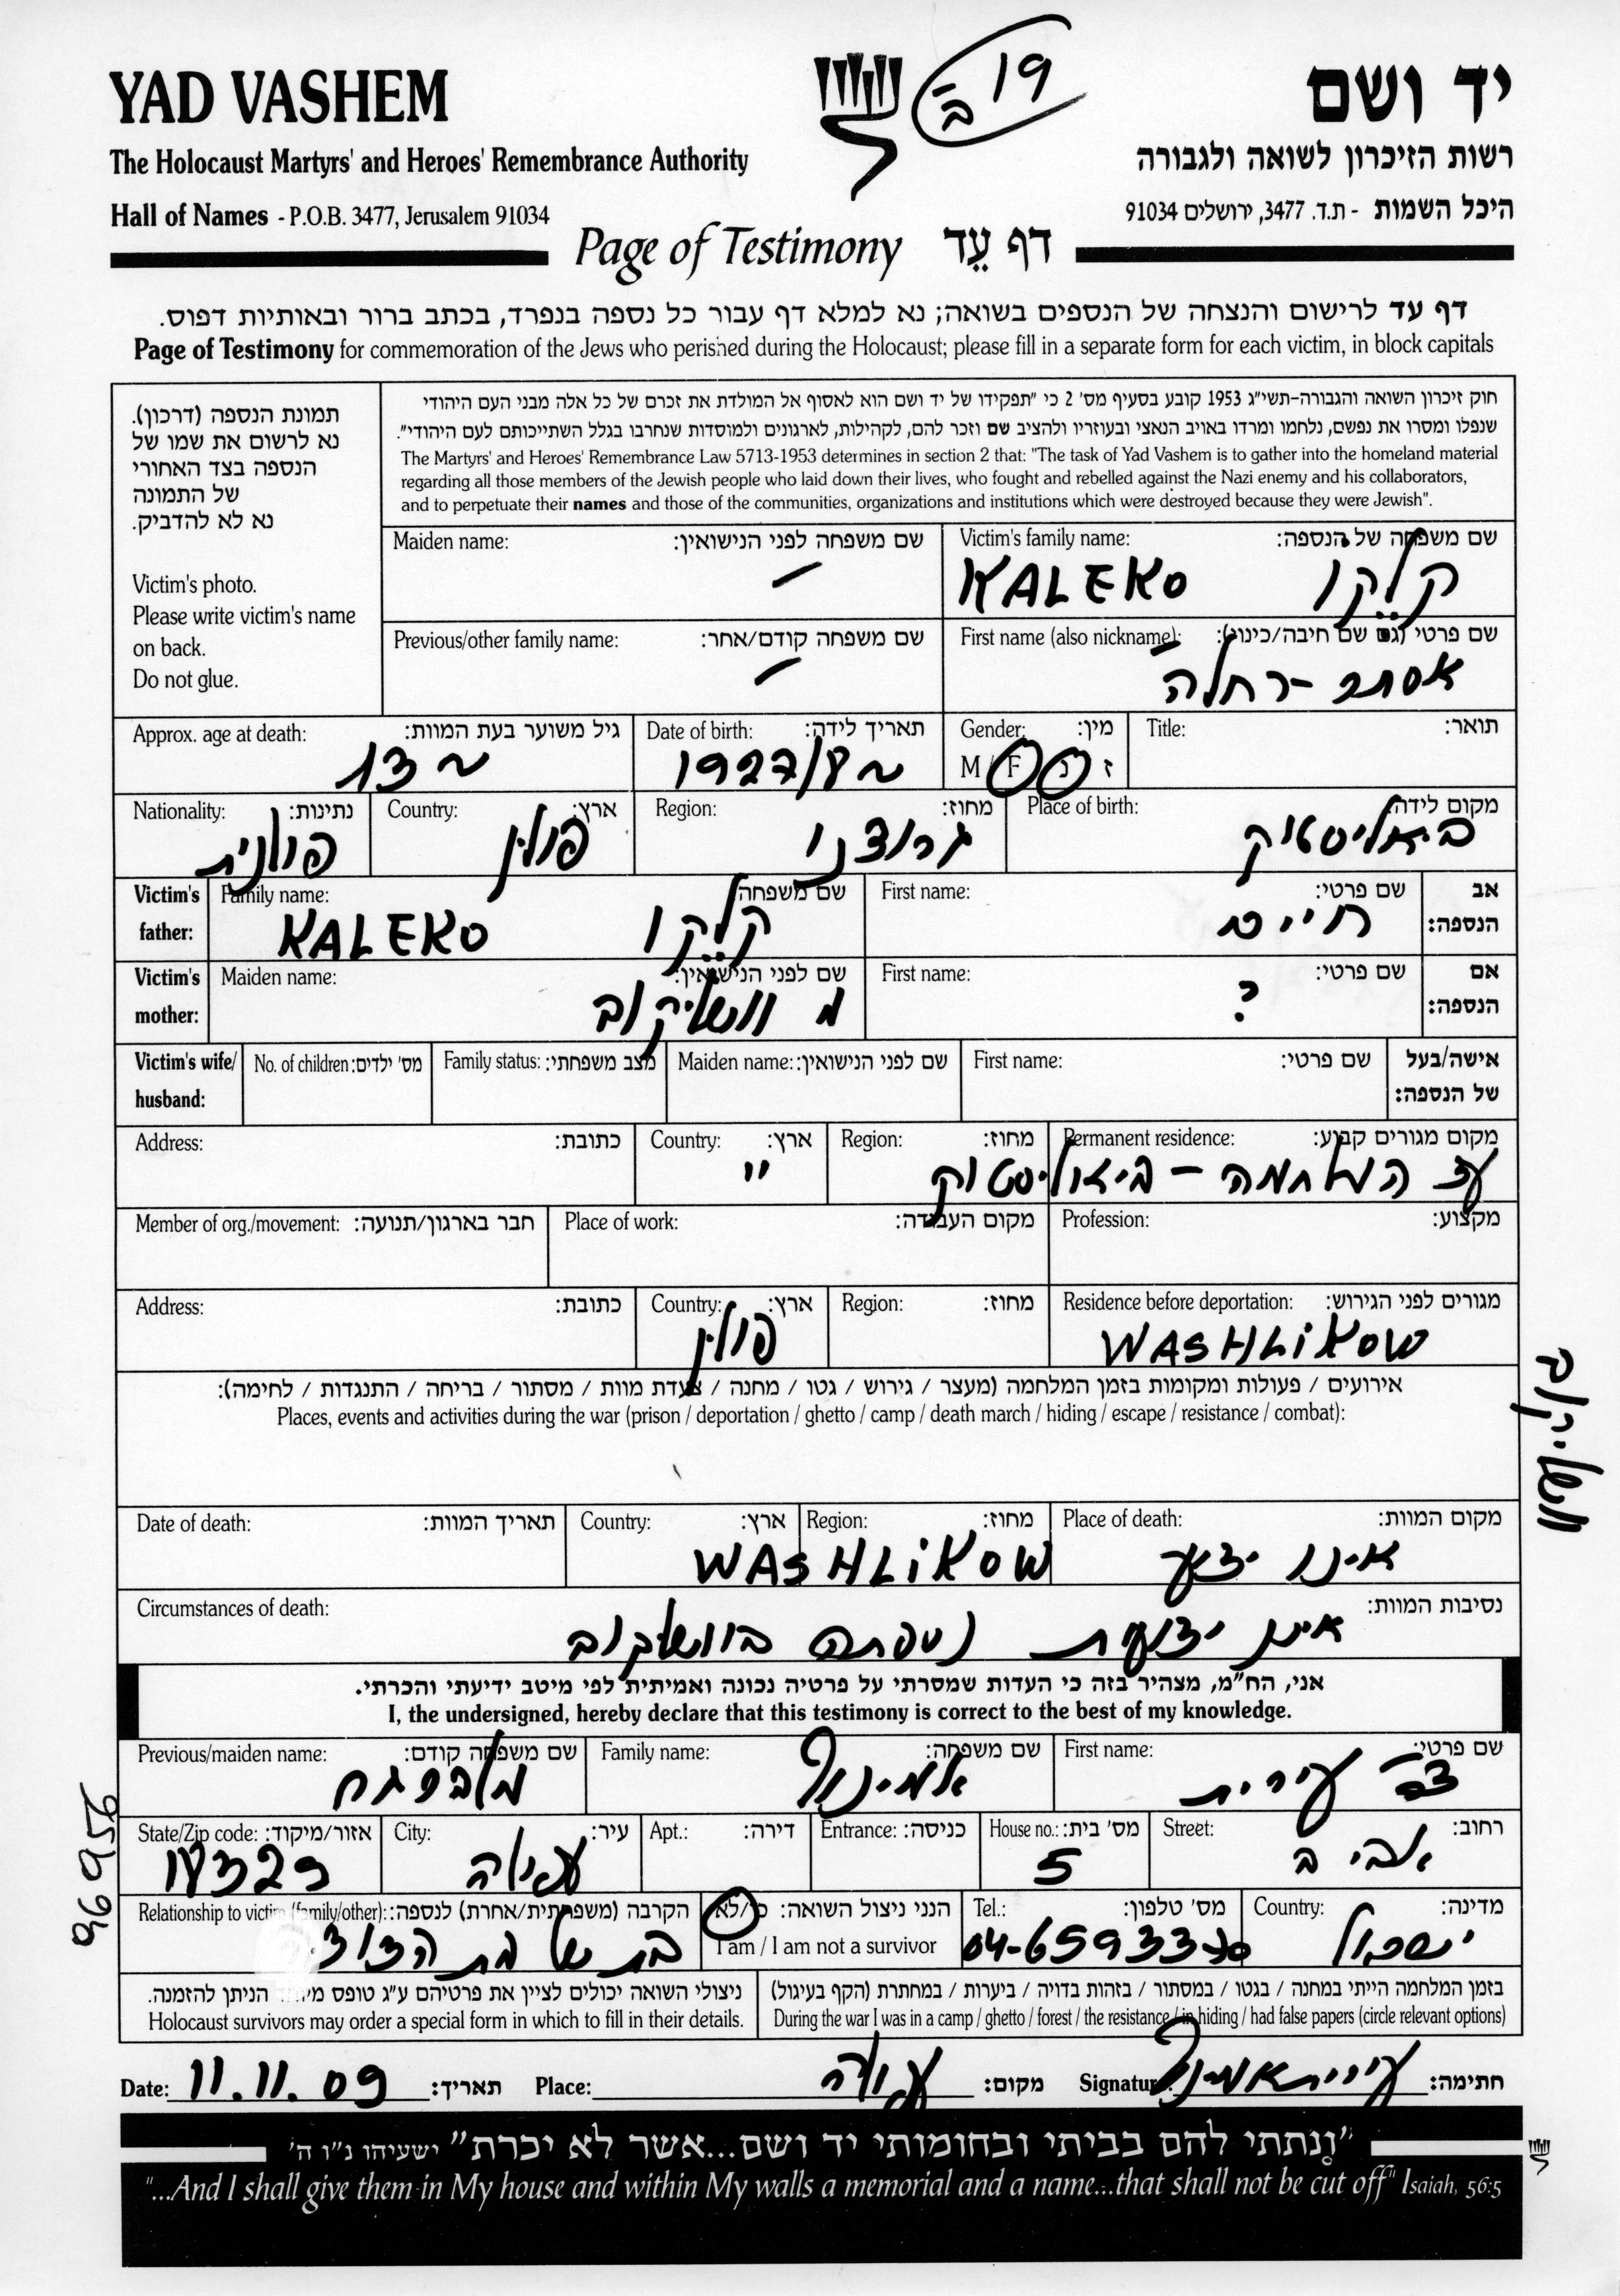 YAD VASHEM
יד ושם
19 ב
The Holocaust Martyrs' and Heroes' Remembrance Authority
רשות הזיכרון לשואה ולגבורה
Hall of Names - P.O.B. 3477, Jerusalem 91034
היכל השמות - ת.ד. 3477, ירושלים 91034
Page of Testimony דף עֵד
דף עד לרישום והנצחה של הנספים בשואה; נא למלא דף עבור כל נספה בנפרד, בכתב ברור ובאותיות דפוס.
Page of Testimony for commemoration of the Jews who perished during the Holocaust; please fill in a separate form for each victim, in block capitals
תמונת הנספה (דרכון).
נא לרשום את שמו של
הנספה בצד האחורי
של התמונה
נא לא להדביק.
Victim's photo.
Please write victim's name
on back.
Do not glue.
חוק זיכרון השואה והגבורה-תשי"ג 1953 קובע בסעיף מס' 2 כי "תפקידו של יד ושם הוא לאסוף אל המולדת את זכרם של כל אלה מבני העם היהודי
שנפלו ומסרו את נפשם, נלחמו ומרדו באויב הנאצי ובעוזריו ולהציב שם וזכר להם, לקהילות, לארגונים ולמוסדות שנחרבו בגלל השתייכותם לעם היהודי".
The Martyrs' and Heroes' Remembrance Law 5713-1953 determines in section 2 that: "The task of Yad Vashem is to gather into the homeland material
regarding all those members of the Jewish people who laid down their lives, who fought and rebelled against the Nazi enemy and his collaborators,
and to perpetuate their names and those of the communities, organizations and institutions which were destroyed because they were Jewish".
Maiden name: שם משפחה לפני הנישואין:
—
Victim's family name: שם משפחה של הנספה:
KALEKO קלקו
Previous/other family name: שם משפחה קודם/אחר:
—
First name (also nickname): שם פרטי (גם שם חיבה/כינוי):
אסתר - רחלה
Approx. age at death: גיל משוער בעת המוות:
~ 13
Date of birth: תאריך לידה:
~ 1927/8
Gender: מין:
M / F נ ז
Title: תואר:
Nationality: נתינות:
פולנית
Country: ארץ:
פולין
Region: מחוז:
גרודנו
Place of birth: מקום לידה:
ביאליסטוק
Victim's father: אב הנספה:
Family name: שם משפחה:
KALEKO קלקו
First name: שם פרטי:
חיים
Victim's mother: אם הנספה:
Maiden name: שם לפני הנישואין:
מ וושליקוב
First name: שם פרטי:
?
Victim's wife/ husband: אישה/בעל של הנספה:
No. of children: מס' ילדים:
Family status: מצב משפחתי:
Maiden name: שם לפני הנישואין:
First name: שם פרטי:
Address: כתובת:
Country: ארץ:
"
Region: מחוז:
Permanent residence: מקום מגורים קבוע:
עד המלחמה - ביאליסטוק
Member of org./movement: חבר בארגון/תנועה:
Place of work: מקום העבודה:
Profession: מקצוע:
Address: כתובת:
Country: ארץ:
פולין
Region: מחוז:
Residence before deportation: מגורים לפני הגירוש:
WASHLiKOW
וושליקוב
אירועים / פעולות ומקומות בזמן המלחמה (מעצר / גירוש / גטו / מחנה / צעדת מוות / מסתור / בריחה / התנגדות / לחימה):
Places, events and activities during the war (prison / deportation / ghetto / camp / death march / hiding / escape / resistance / combat):
Date of death: תאריך המוות:
Country: ארץ:
Region: מחוז:
WASHLiKOW
Place of death: מקום המוות:
אינו ידוע
Circumstances of death: נסיבות המוות:
אינן ידועות נספתה בוושליקוב
אני, הח"מ, מצהיר בזה כי העדות שמסרתי על פרטיה נכונה ואמיתית לפי מיטב ידיעתי והכרתי.
I, the undersigned, hereby declare that this testimony is correct to the best of my knowledge.
Previous/maiden name: שם משפחה קודם:
Family name: שם משפחה:
אמינוף
First name: שם פרטי:
עירית
96956
State/Zip code: אזור/מיקוד:
18323
City: עיר:
עפולה
Apt.: דירה:
Entrance: כניסה:
House no.: מס' בית:
5
Street: רחוב:
Relationship to victim (family/other): הקרבה (משפחתית/אחרת) לנספה:
בת של בת הדודה
הנני ניצול השואה: כן/לא
I am / I am not a survivor
Tel.: מס' טלפון:
04-6593330
Country: מדינה:
ישראל
ניצולי השואה יכולים לציין את פרטיהם ע"ג טופס מיוחד הניתן להזמנה.
Holocaust survivors may order a special form in which to fill in their details.
בזמן המלחמה הייתי במחנה / בגטו / במסתור / בזהות בדויה / ביערות / במחתרת (הקף בעיגול)
During the war I was in a camp / ghetto / forest / the resistance / in hiding / had false papers (circle relevant options)
Date: 11.11.09 תאריך: Place: עפולה מקום: Signature: עירית אמינוף חתימה:
"ונתתי להם בביתי ובחומותי יד ושם...אשר לא יכרת" ישעיהו נ"ו ה'
"...And I shall give them in My house and within My walls a memorial and a name...that shall not be cut off" Isaiah, 56:5